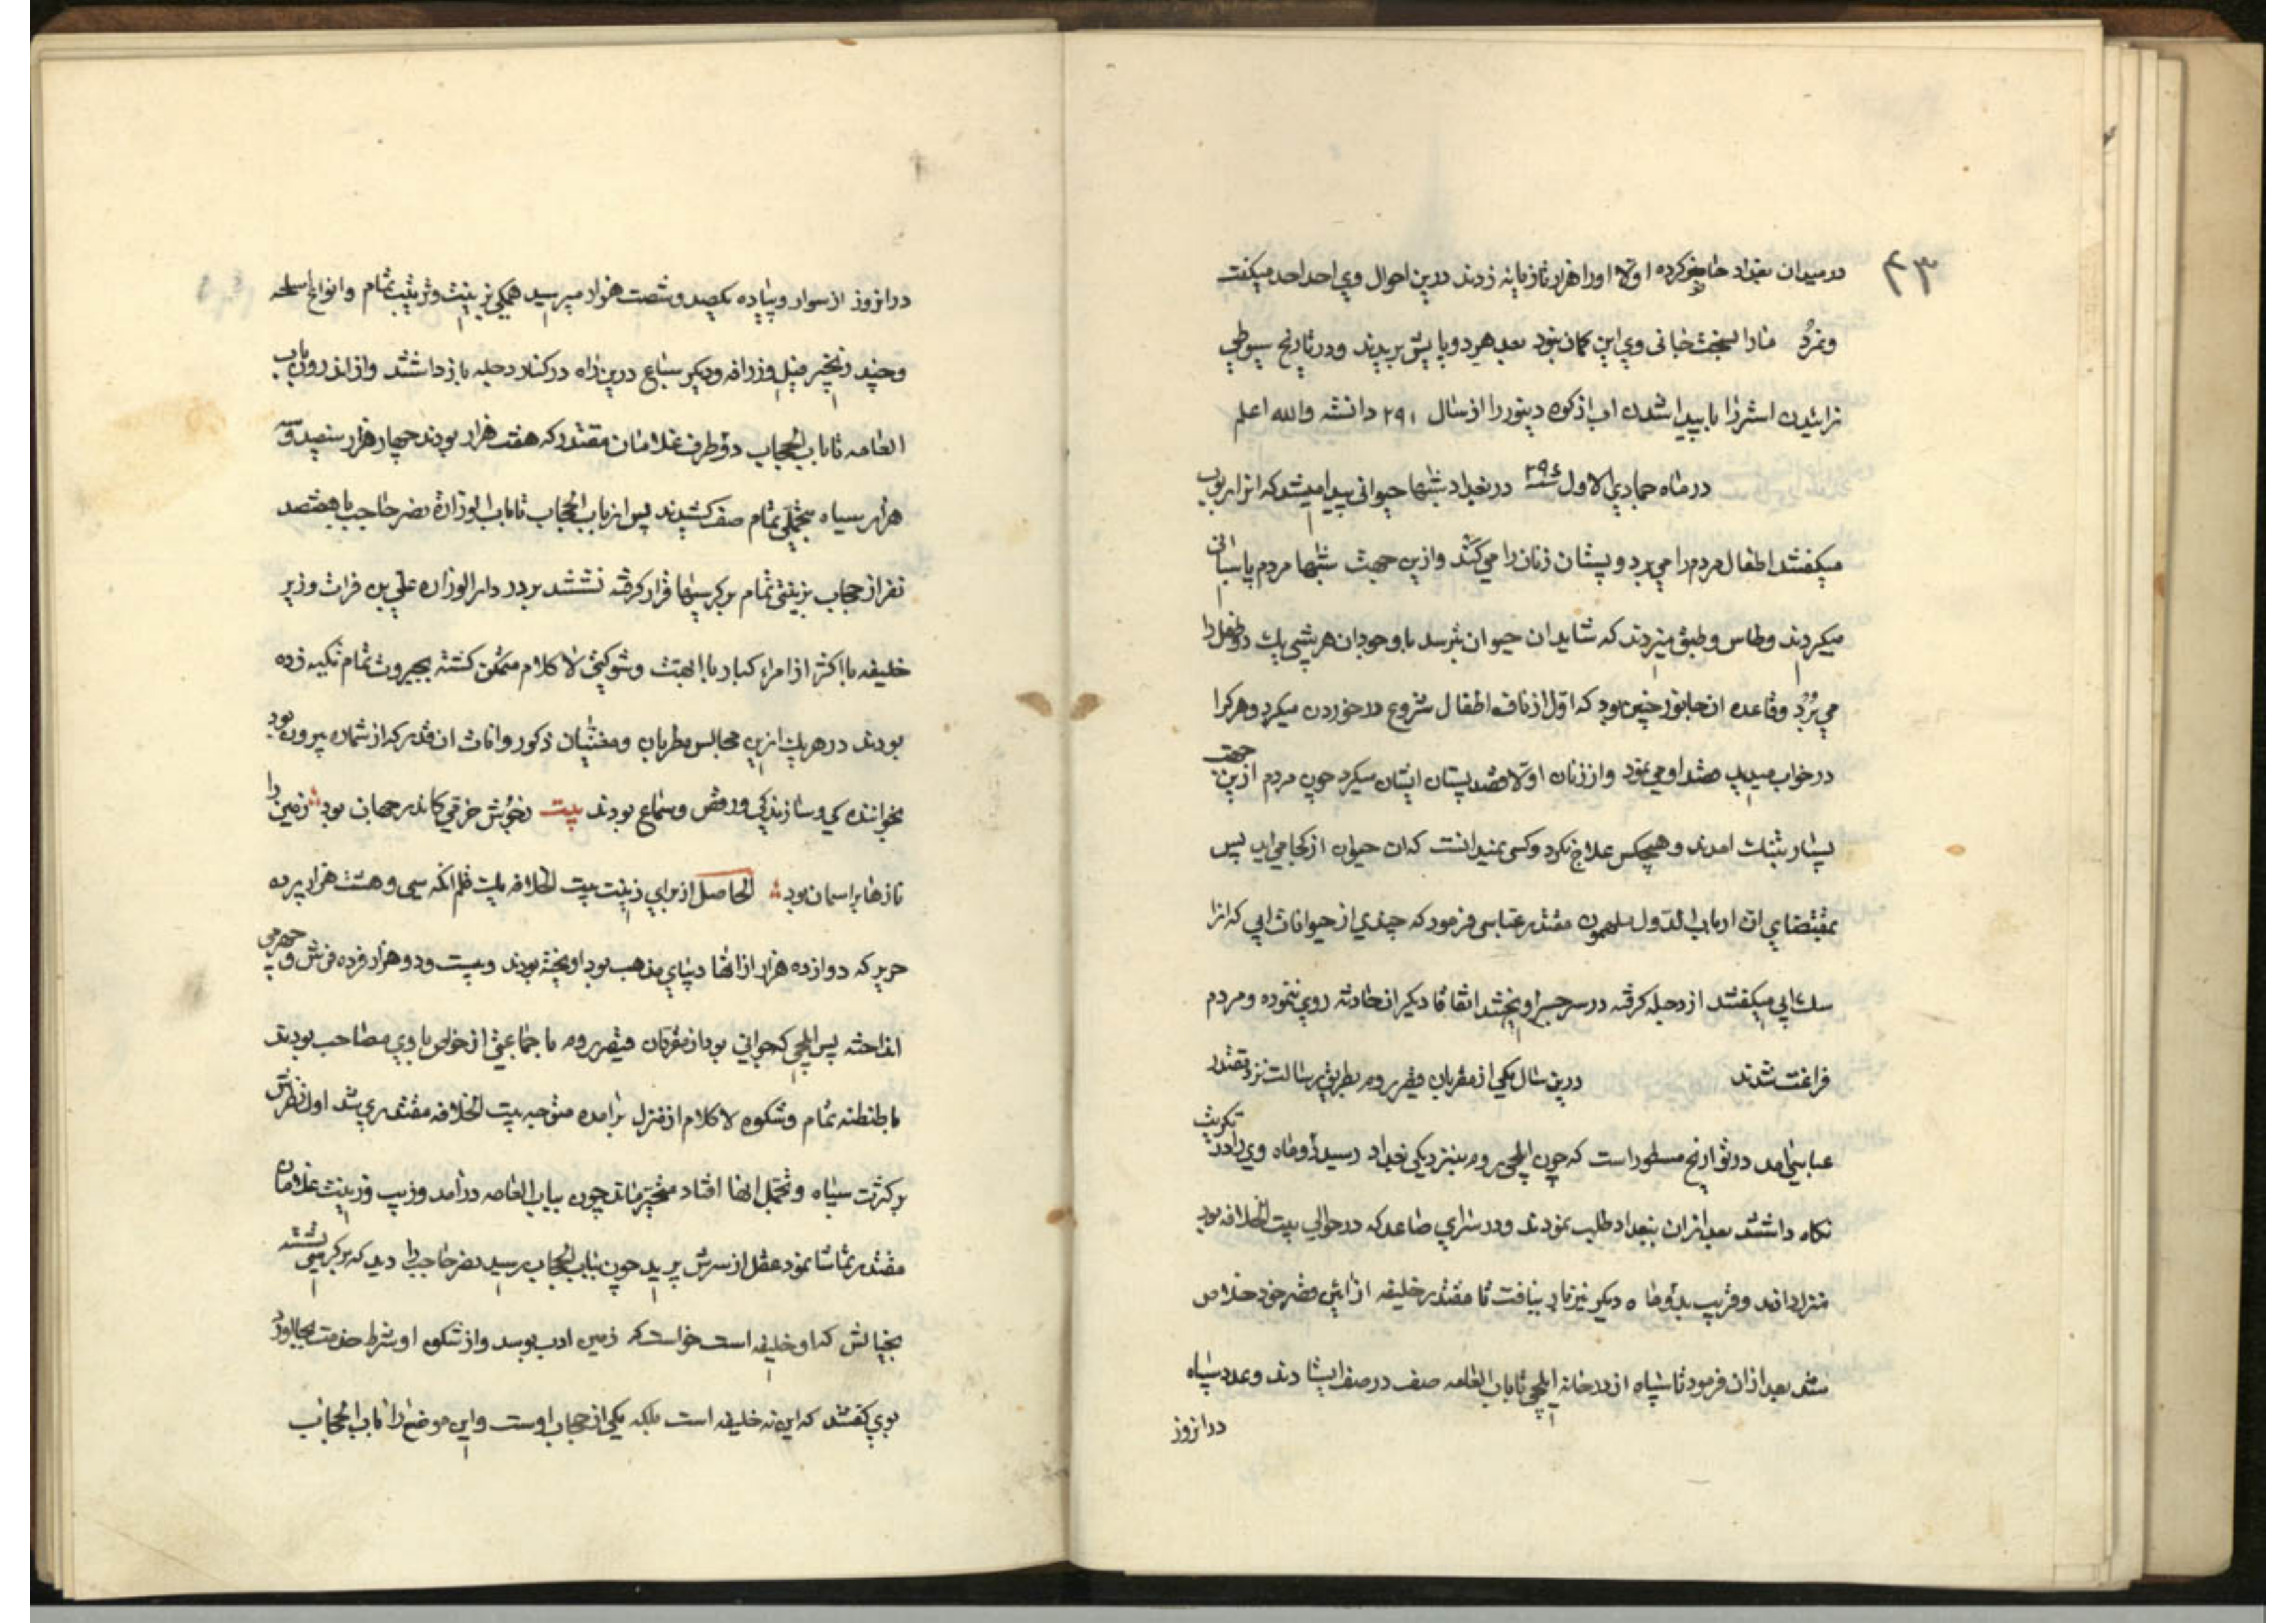 ۴۳
در میدان بغداد حاضر کرده اولا او را هزار تازیانه زدند درین احوال وی احد احد میکفت
ونمرد بعد هر دو پایش بریدند ودر تاریخ سیوطی
زائیدن استر را با پیدا شدن اب از کوه دینور را از سال ۲۹۱ دانسته والله اعلم
در ماه جمادی الاول سنه ۲۹٤ در بغداد شبها حیوانی پیدا میشد که انرا زبزب
میکفتند اطفال مردم را می برد و پستان زنان را می کند وازین جهت شبها مردم پاسبانی
میکردند وطاس وطبق میزدند که شاید ان حیوان بترسد با وجود ان هر شبی یک دو طفل را
می برد وقاعده ان جانور چنین بود که اول از ناف اطفال شروع در خوردن میکرد وهر کرا
در خواب میدید قصد او می نمود واز زنان اولا قصد پستان ایشان میکرد چون مردم ازین جهت
بسیار بتنک امدند وهیچکس علاج نکرد وکسی نمیدانست که ان حیوان از کجا می اید پس
بمقتضای ان ارباب الدول ملهمون مقتدر عباسی فرمود که چندی از حیوانات ابی که انرا
سک ابی میکفتند از دجله کرفته در سر جسر اویختند اتفاقا دیکر ان حادثه روی ننموده ومردم
فراغت شدند درین سال یکی از مقربان قیصر روم بطریق رسالت نزد مقتدر
عباسی امد در تواریخ مسطور است که چون ایلچی روم بنزدیکی بغداد رسید دو ماه وی را در تکریت
نکاه داشتند بعد ازان ببغداد طلب نمودند ودر سرای صاعد که در حوالی بیت الخلافه بود
منزل دادند وقریب بدو ماه دیکر نیز بار نیافت تا مقتدر خلیفه از ائین قصر خود خلاص
شد بعد ازان فرمود تا سپاه از در خانه ایلچی تا باب العامه صف در صف ایستادند وعدد سپاه
در انروز
در انروز از سوار وپیاده یکصد وشصت هزار میرسید همکی بزینت وترتیب تمام وانواع اسلحه
وچند زنجیر فیل وزرافه ودیکر سباع درین راه در کنار دجله باز داشتند وازان رو از باب
العامه تا باب الحجاب دو طرف غلامان مقتدر که هفت هزار بودند چهار هزار سفید وسه
هزار سیاه بتجملی تمام صف کشیدند پس از باب الحجاب تا باب الوزارة نصر حاجب با هفتصد
نفر از حجاب بزینتی تمام بر کرسیها قرار کرفته نشستند بر در دار الوزاره علی بن فرات وزیر
خلیفه با اکثر از امراء کبار با ابهت وشوکتی لا کلام متمکن کشته بجبروت تمام تکیه زده
بودند در هر یک ازین مجالس مطربان ومغنیان ذکور واناث ان قدر که از شماره بیرون بود
بخوانندکی وسازندکی ورقص وسماع بودند بیت زخوش خرقی کاندر جهان بود زمین را
نازها بر اسمان بود الحاصل از برای زینت بیت الخلافه بلت قلم انکه سی وهشت هزار پرده
حریر که دوازده هزار از انها دیبای مذهب بود اویخته بودند وبیست ودو هزار فرده فرش وجهرمی
انداخته پس ایلچی که جوانی بود از مقربان قیصر روم با جماعتی از خواص با وی مصاحب بودند
با طنطنه تمام وشکوه لا کلام از منزل برامده متوجه بیت الخلافه مقتدری شد اول نظرش
بر کثرت سپاه وتجمل انها افتاد متحیر ماند چون بباب العامه درامد وزیب وزینت غلامان
مقتدر تماشا نمود عقل از سرش پرید چون بباب الحجاب رسید نصر حاجب را دید که بر کرسی نشسته
بخیالش که او خلیفه است خواست که زمین ادب بوسد واز شکوه او شرط خدمت بجا اورد
بوی کفتند که این نه خلیفه است بلکه یکی از حجاب اوست واین موضع را باب الحجاب